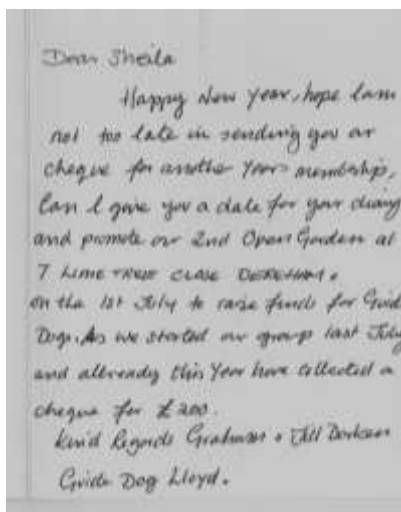 Dear Sheila
Happy New Year, hope I am
not too late in sending you our
cheque for another Years membership,
Can I give you a date for your diary
and promote our 2nd Open Garden at
7 LIME TREE CLOSE DEREHAM.
on the 1st July to raise funds for Guide
Dogs. As we started our group last July
and allready this Year have collected a
cheque for £200.
Kind Regards Graham + Jill
Guide Dog Lloyd.